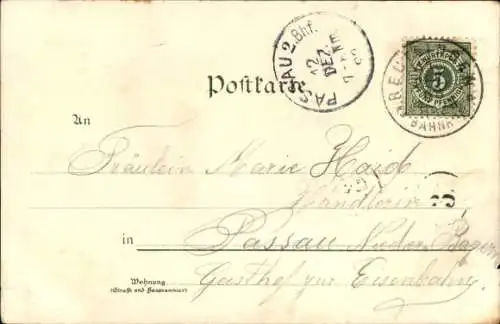 PASSAU 2. Bhf.
12
DEZ.
7-
5
FÜNF PFENNIG
BAHNH
Postkarte
An
Fräulein Marie Haid
Händlerin
in Passau Nieder Bayern
Gasthof zur Eisenbahn
Wohnung
(Straße und Hausnummer)